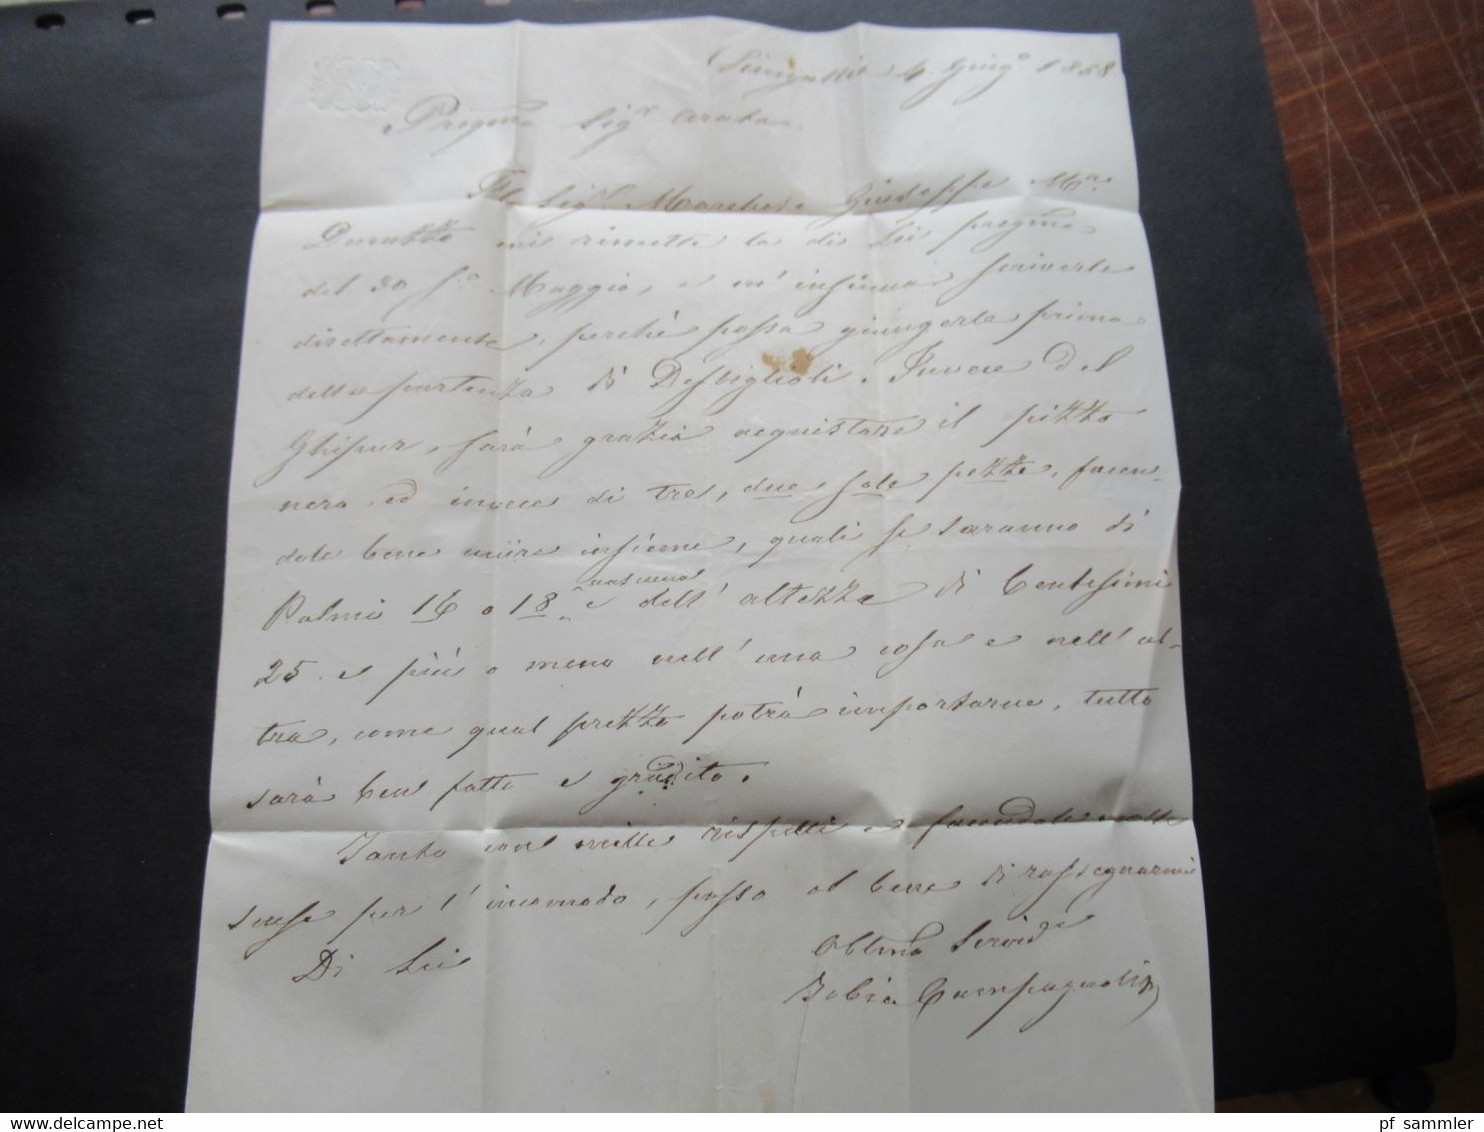 Sinigallia 4. Giug.o 1858
Pregmo Sig.r
Il Sig.r Marchese Giuseppe M.a
mi rimette la di Lei pregma
del 30 p.o Maggio, e m'insinua scriverle
direttamente, perchè possa giungerle prima
della partenza di Desbiglioli. Invece del
Ghipur, farà grazia acquistare il pizzo
nero ed invece di tre, due sole pezze, facen
dole bene unire insieme, quali se saranno di
Palmi 16 o 18 e dell'altezza di Centesimi
25. e più o meno nell'una cosa e nell'al-
tra, come qual prezzo potrà importarne, tutto
sarà ben fatto e gradito.
Tanto con mille rispetti e facendole molte
scuse per l'incomodo, passo al bene di rassegnarmi
Di Lei
Obbmo Servid.e
Campagnoli
pf sammler